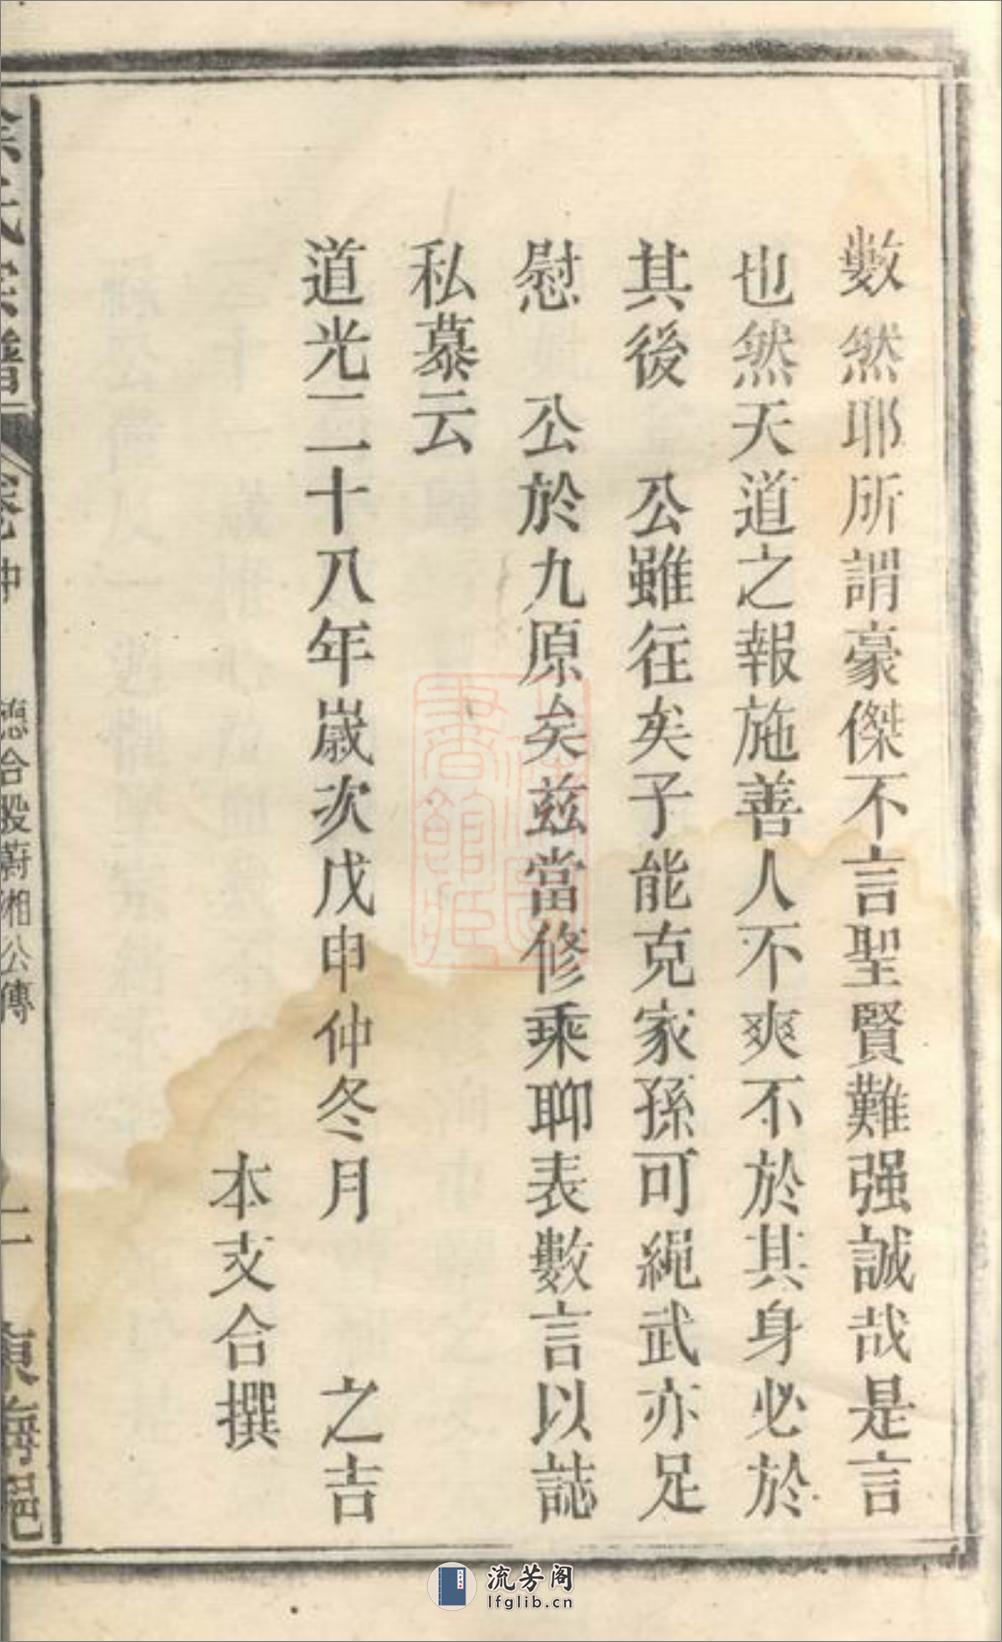 數然耶所謂豪傑不言聖賢難强誠哉是言
也然天道之報施善人不爽不於其身必於
其後　公雖往矣子能克家孫可繩武亦足
慰　公於九原矣茲當修乘聊表數言以誌
私慕云
道光二十八年歲次戊申仲冬月　之吉
本支合撰
徐氏宗譜
卷中
德合殷蔚湘公傳
二
東海
流芳阁
lfglib.cn